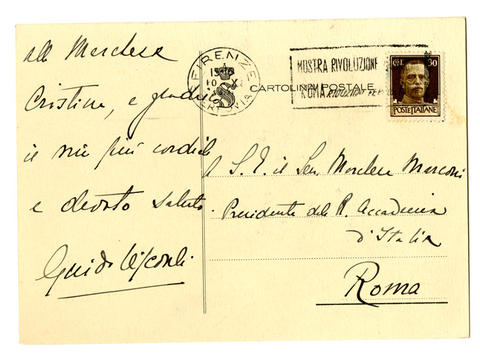 alla Marchesa
Cristina, e gradisca
il mio più cordiale
e devoto saluto.
Guido Visconti
FIRENZE
FERROVIA
MOSTRA RIVOLUZIONE
ROMA
CENT. 30
POSTE ITALIANE
CARTOLINA POSTALE
A S. E. il Sen. Marchese Marconi
Presidente della R. Accademia
d'Italia
Roma